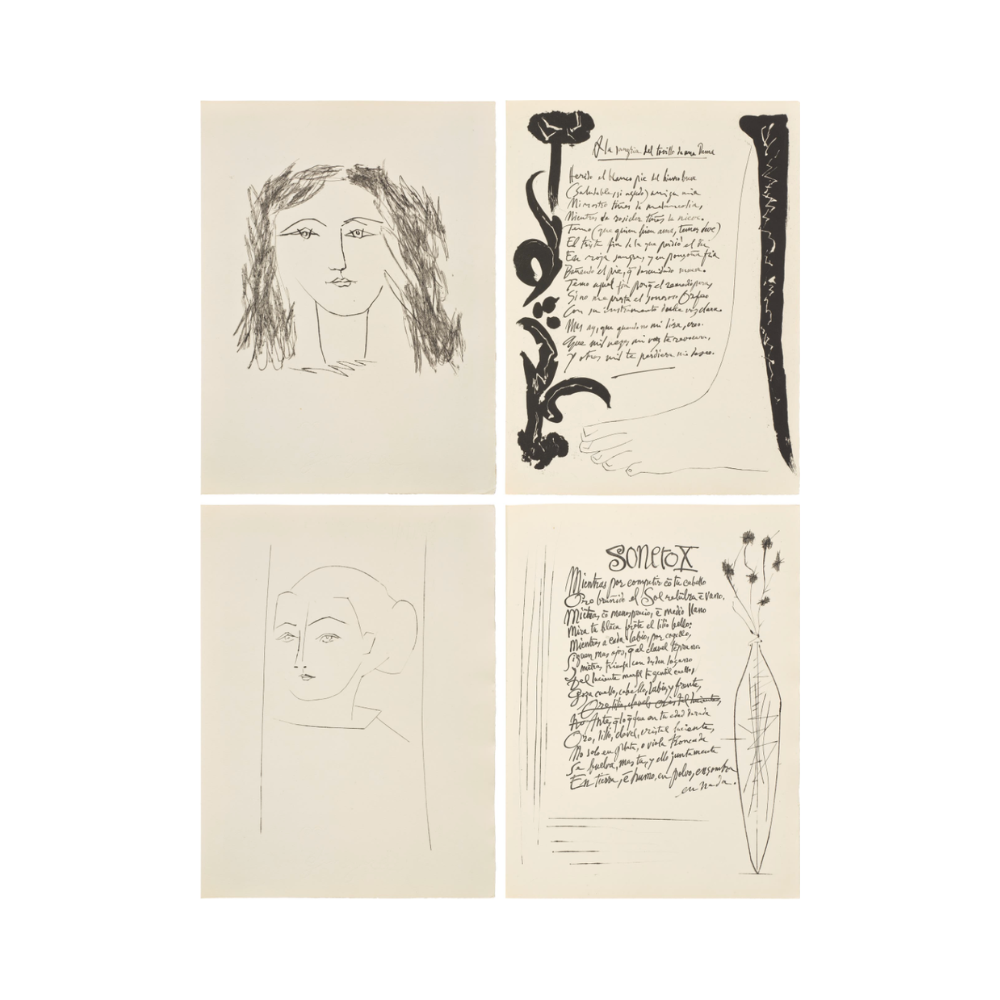 A la del tovillo de una Dama
Herido el blanco pie del hierro breve
(Saludable, si agudo) amiga mia
Mi rostro tiñes de melancolia,
Mientras de rosicler tiñes la nieve.
Temo (que quien bien ama, temer deve)
El triste fin de la que perdió el dia
En roja sangre, y en ponçoña fria
Bañado el pie, q descuidado mueve.
Temo aquel fin porq el remedio para,
Si no me presta el sonoroso Orfeo
Con su instrumento dulce voz clara.
Mas ay, que quando no mi lira, creo
Que mil veces mi voz te revocara,
Y otras mil te perdiera mi deseo.
SONETO X
Mientras por competir cõ tu cabello
Oro bruñido el Sol relũbra ẽ vano,
Mientras, cõ menosprecio, ẽ medio llano
Mira tu blãca frẽte el lilio bello:
Mientras a cada labio, por cogello,
Siguen mas ojos, q̃ al clavel temprano
I mientras triunfa con desden loçano
Del luciente marfil tu gentil cuello,
Goza cuello, cabello, labio, y frente,
Oro, lilio, clavel,
Antes, q̃ lo q̃ fue en tu edad dorada
Oro, lilio, clavel, cristal luciente,
No solo en plata, o viola troncada
Se buelva, mas tu, y ello juntamente
En tierra, ẽ humo, en polvo, en sombra
en nada.